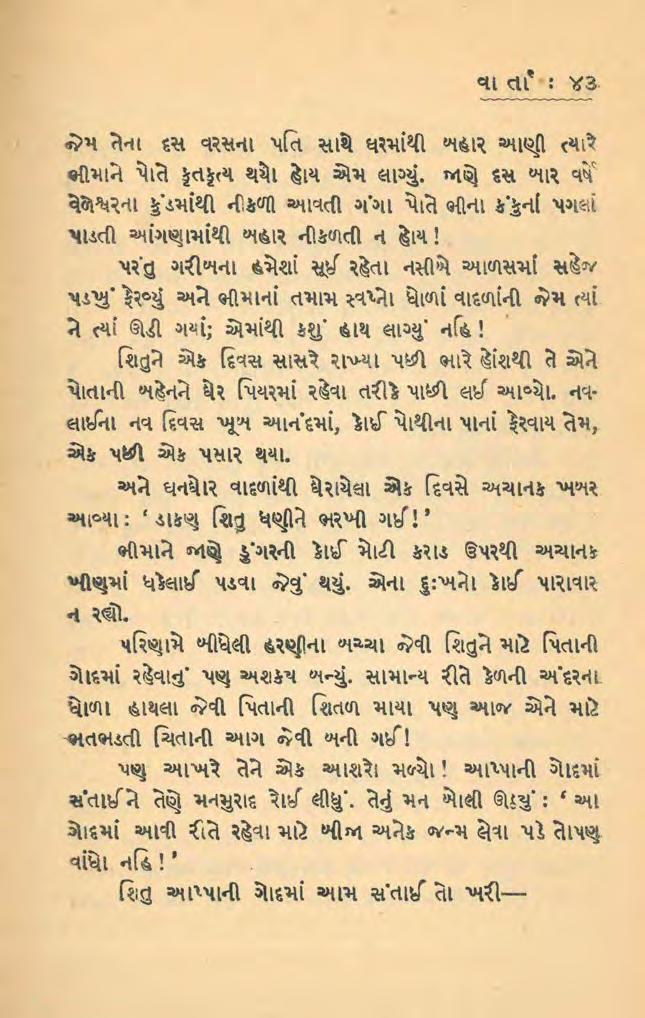 વા ર્તા : ૪૩
જેમ તેના દસ વરસના પતિ સાથે ઘરમાંથી બહાર આણી ત્યારે
ભીમાને પોતે કૃતકૃત્ય થયો હોય એમ લાગ્યું. જાણે દસ બાર વર્ષે
વેળેશ્વરના કુંડમાંથી નીકળી આવતી ગંગા પોતે ભીના કંકુનાં પગલાં
પાડતી આંગણામાંથી બહાર નીકળતી ન હોય!
પરંતુ ગરીબના હમેશાં સૂઈ રહેતા નસીબે આળસમાં સહેજ
પડખું ફેરવ્યું અને ભીમાનાં તમામ સ્વપ્નો ધોળાં વાદળાંની જેમ ત્યાં
ને ત્યાં ઊડી ગયાં; એમાંથી કશું હાથ લાગ્યું નહિ!
શિતુને એક દિવસ સાસરે રાખ્યા પછી ભારે હોંશથી તે એને
પોતાની બહેનને ઘેર પિયરમાં રહેવા તરીકે પાછી લઈ આવ્યો. નવ-
લાઈના નવ દિવસ ખૂબ આનંદમાં, કોઈ પોથીના પાનાં ફેરવાય તેમ,
એક પછી એક પસાર થયા.
અને ઘનઘોર વાદળાંથી ઘેરાયેલા એક દિવસે અચાનક ખબર
આવ્યા: ‘ ડાકણ શિતુ ધણીને ભરખી ગઈ!’
ભીમાને જાણે ડુંગરની કોઈ મોટી કરાડ ઉપરથી અચાનક
ખીણમાં ધકેલાઈ પડવા જેવું થયું. એના દુઃખનો કોઈ પારાવાર
ન રહ્યો.
પરિણામે બીધેલી હરણીના બચ્ચા જેવી શિતુને માટે પિતાની
ગોદમાં રહેવાનું પણ અશક્ય બન્યું. સામાન્ય રીતે કેળની અંદરના
ધોળા હાથલા જેવી પિતાની શિતળ માયા પણ આજ એને માટે
ભતભડતી ચિતાની આગ જેવી બની ગઈ!
પણ આખરે તેને એક આશરો મળ્યો! આપ્પાની ગોદમાં
સંતાઈને તેણે મનમુરાદ રોઈ લીધું. તેનું મન બોલી ઊઠ્યું : ‘ આ
ગોદમાં આવી રીતે રહેવા માટે બીજા અનેક જન્મ લેવા પડે તોપણ
વાંધો નહિ!’
શિતુ આપ્પાની ગોદમાં આમ સંતાઈ તો ખરી—